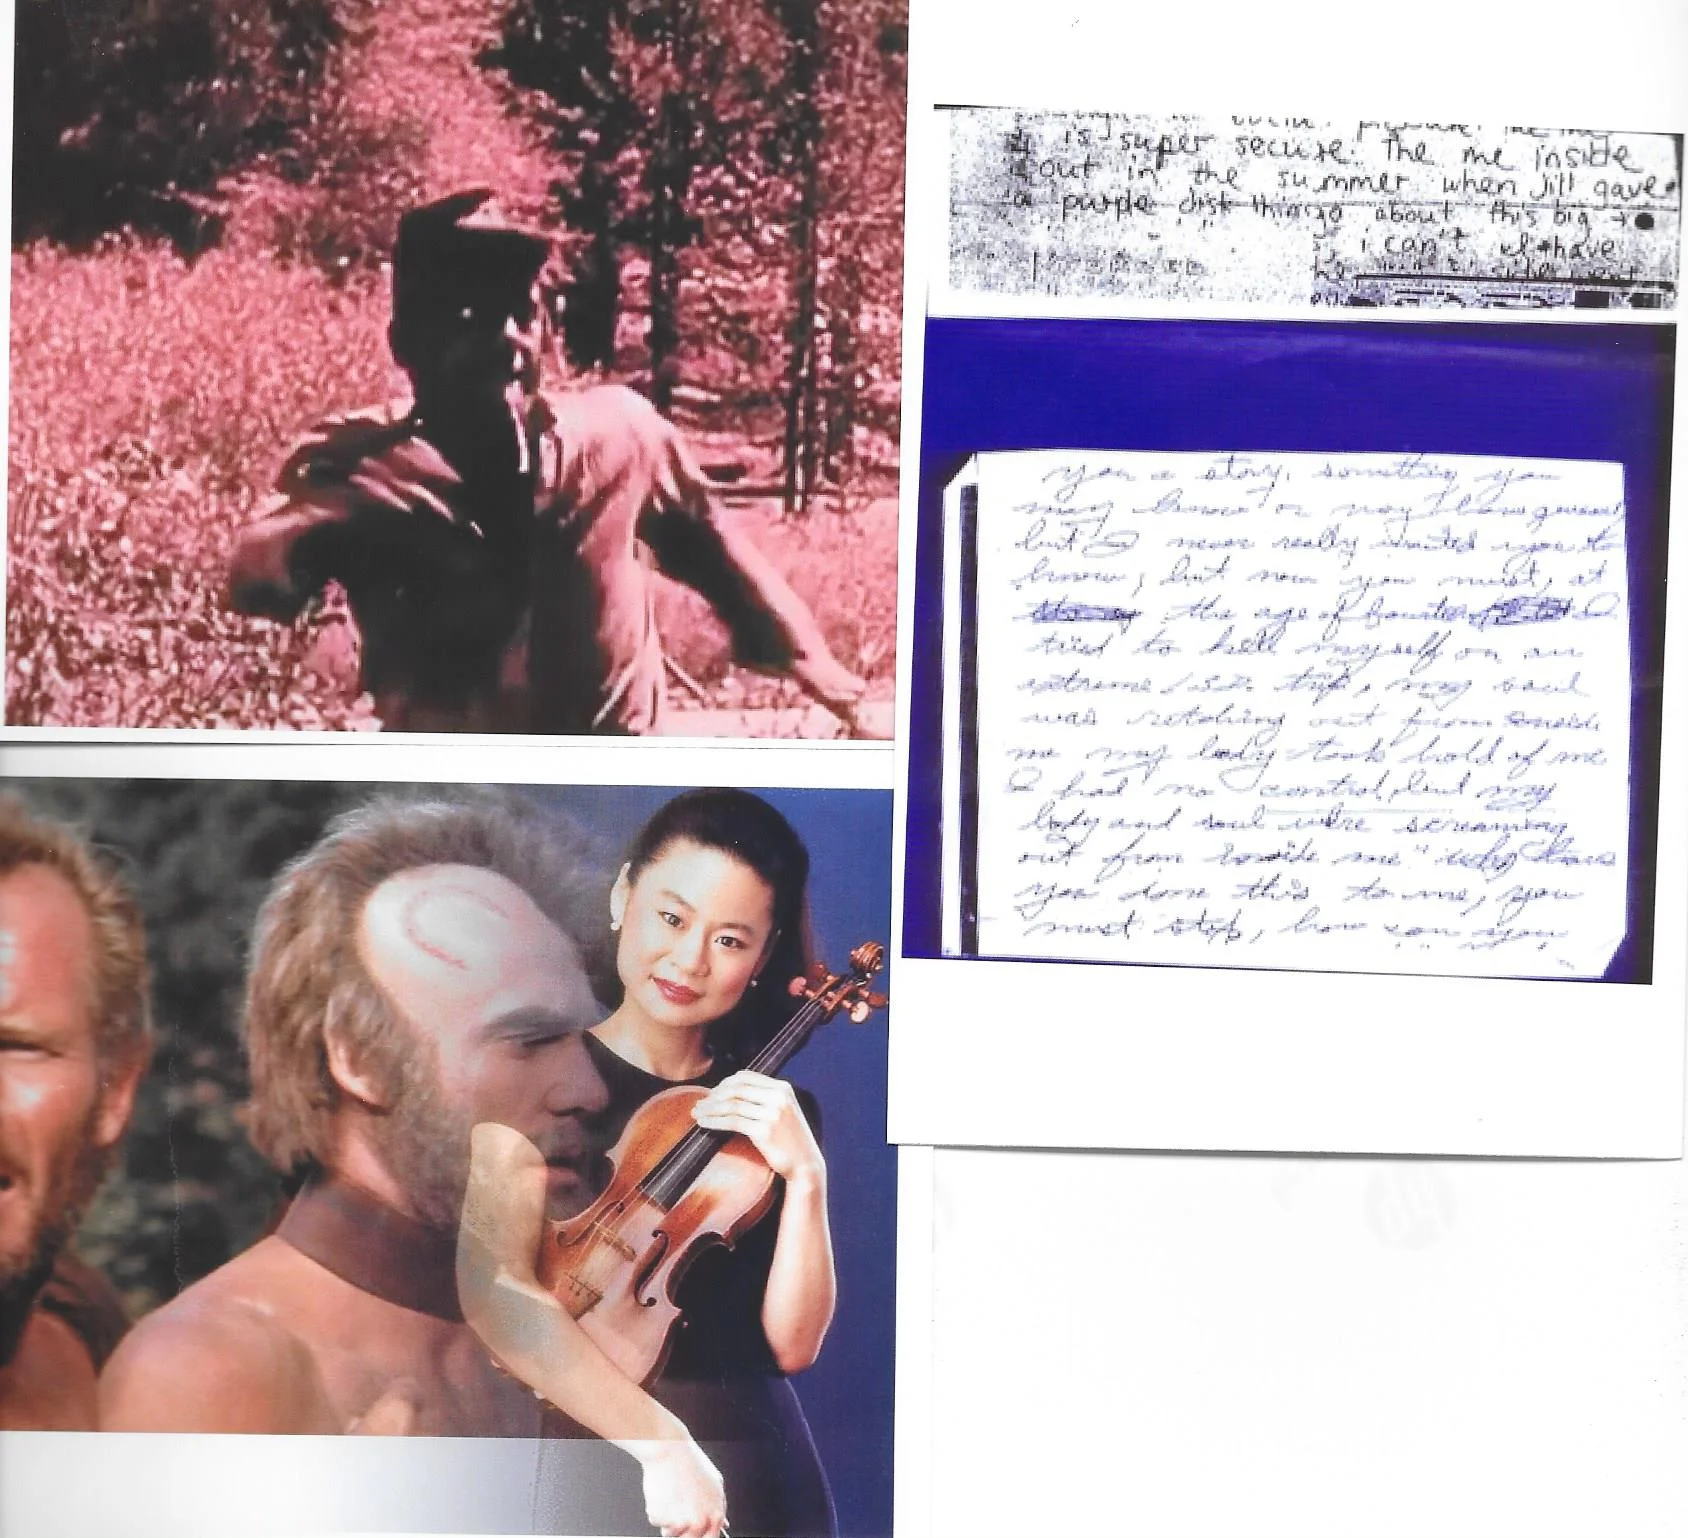 is super secure. The me inside
out in the summer when Jill gave
a purple disk thingo about this big →
i can't have
you a story, something you
may know or may have guessed
but I never really wanted you to
know, but now you must, at
the age of fourteen I
tried to kill myself on an
extreme LSD trip, my soul
was retching out from inside
me my body took hold of me
I had no control, but my
body and soul were screaming
out from inside me "why have
you done this to me, you
must stop, how can you